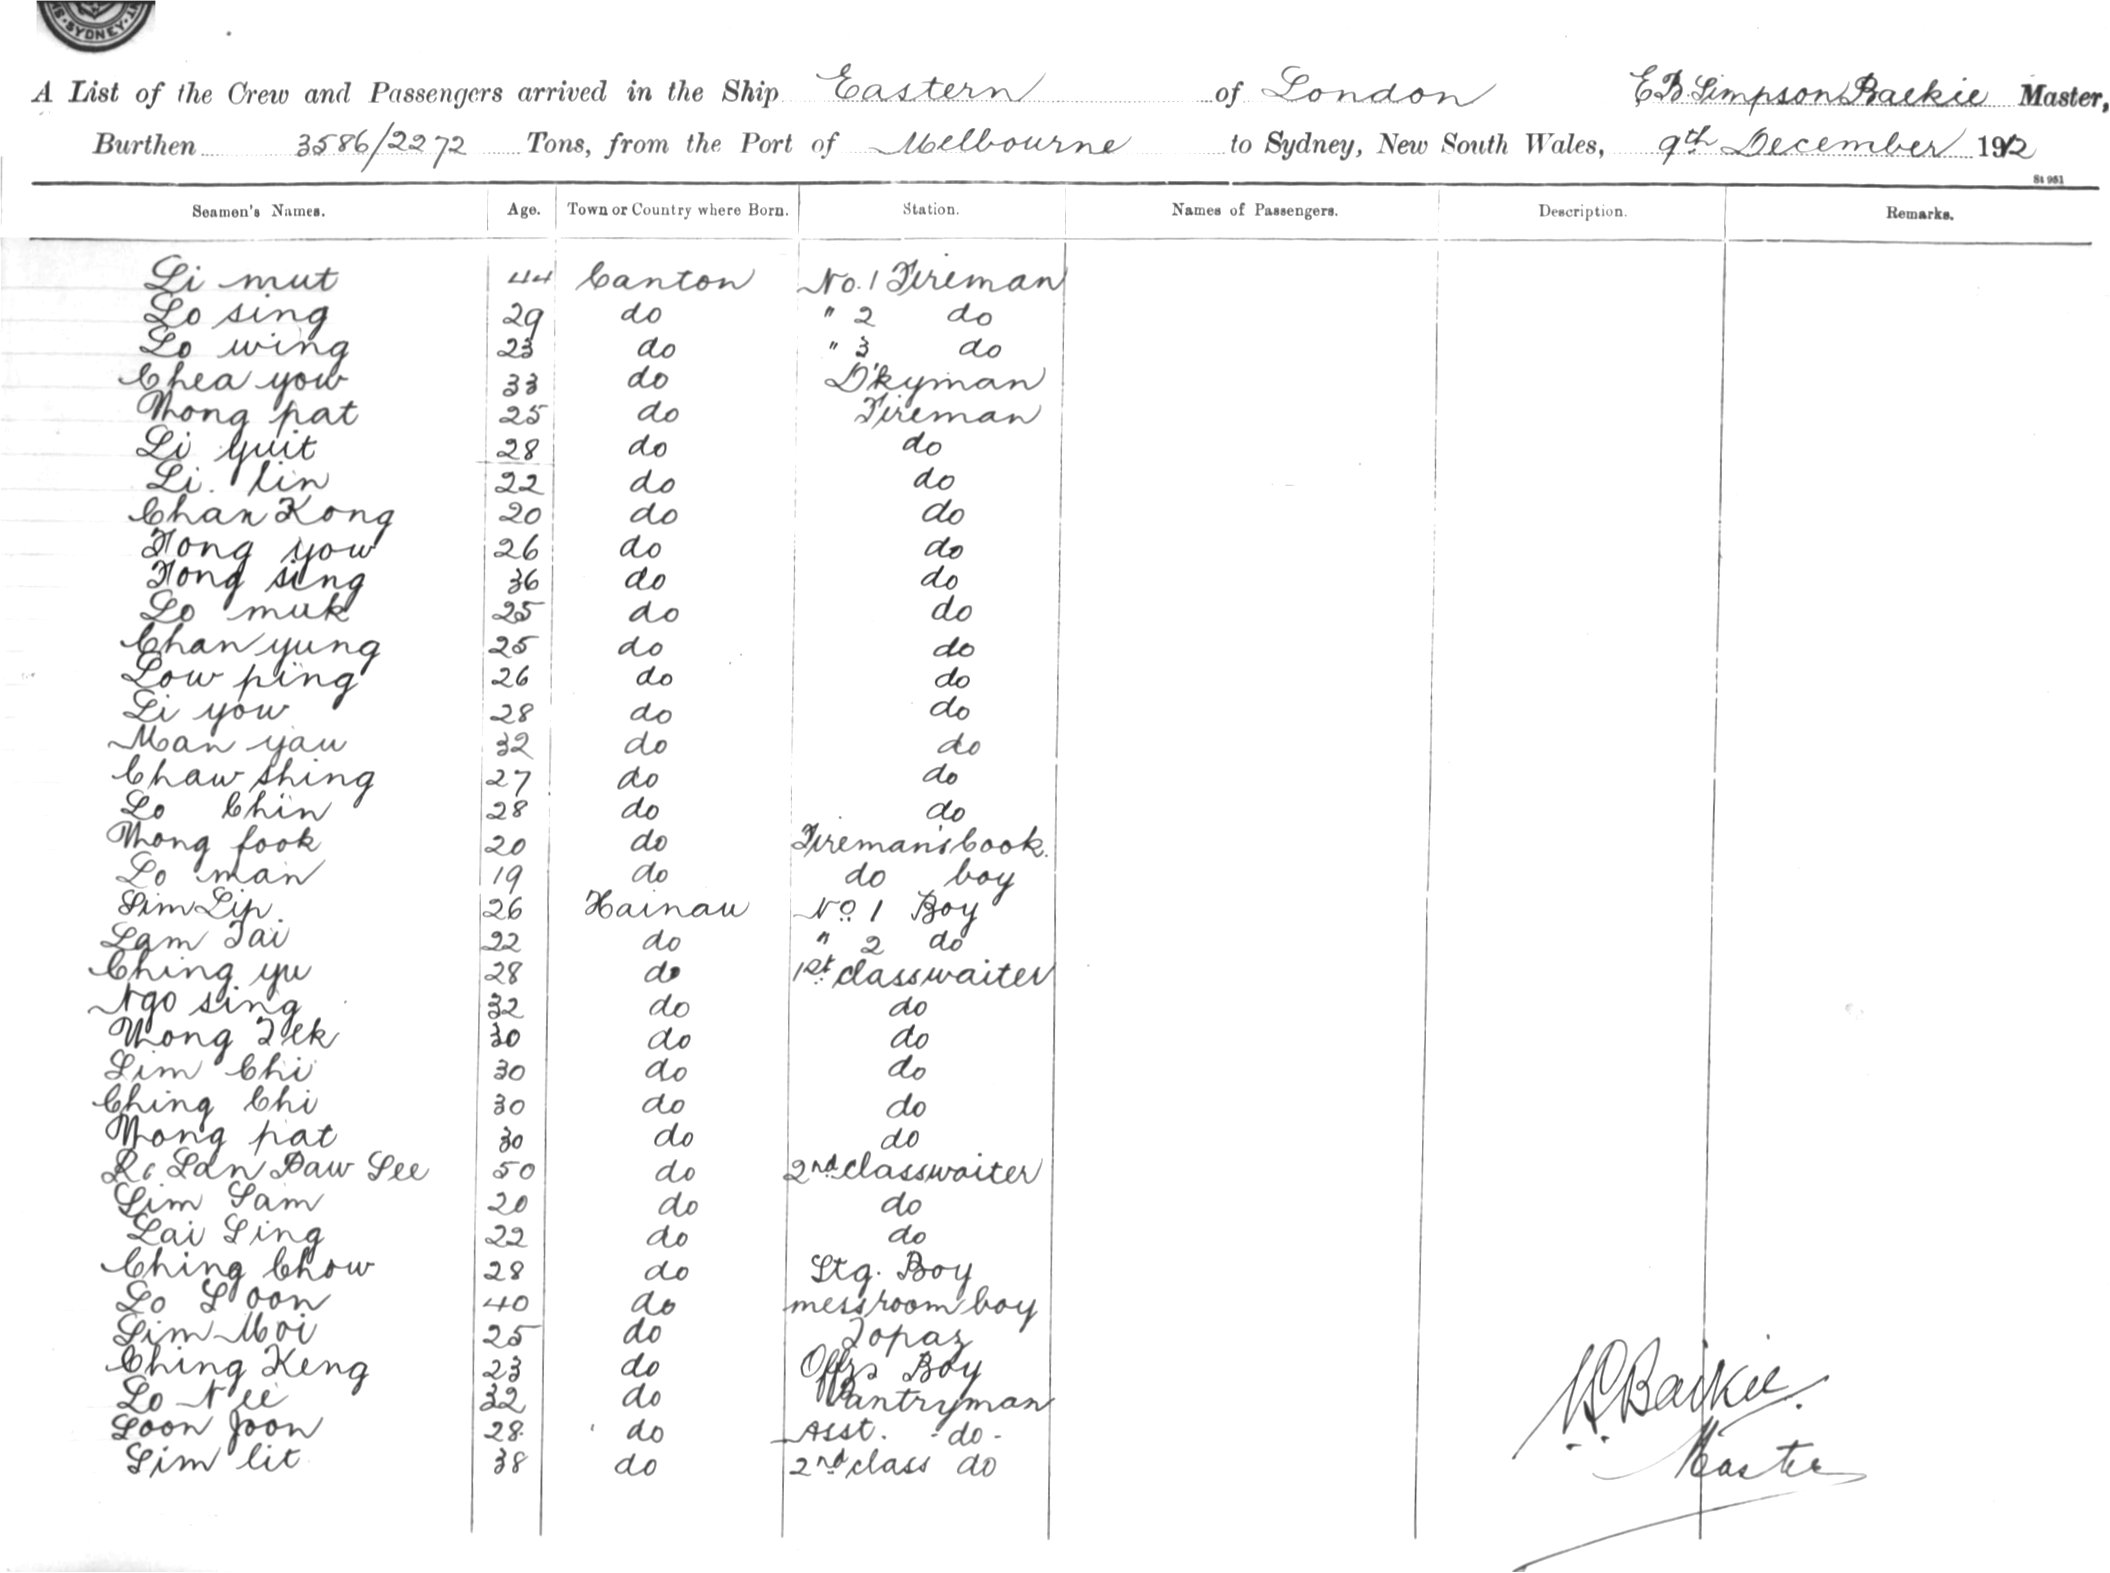 SYDNEY
A List of the Crew and Passengers arrived in the Ship Eastern of London E B Simpson Baikie Master,
Burthen 3586/2272 Tons, from the Port of Melbourne to Sydney, New South Wales, 9th December 1912
St 961
Seamen's Names. Age. Town or Country where Born. Station. Names of Passengers. Description. Remarks.
Li mut 44 Canton No. 1 Fireman
Lo sing 29 do " 2 do
Lo wing 23 do " 3 do
Chea yow 33 do D'kyman
Wong pat 25 do Fireman
Li yuit 28 do do
Li lin 22 do do
Chan Kong 20 do do
Hong yow 26 do do
Hong sing 36 do do
Lo muk 25 do do
Chan yung 25 do do
Low ping 26 do do
Li yow 28 do do
Man yau 32 do do
Chaw shing 27 do do
Lo Chin 28 do do
Wong fook 20 do Fireman's Cook.
Lo man 19 do do boy
Sim Lip. 26 Hainau No. 1 Boy
Lam Tai 22 do " 2 do
Ching yu 28 do 1st class waiter
Ngo sing 32 do do
Wong Tek 30 do do
Lim Chi 30 do do
Ching Chi 30 do do
Wong pat 30 do do
Lan Daw See 50 do 2nd class waiter
Lim Sam 20 do do
Lai Sing 22 do do
Ching Chow 28 do Stg. Boy
Lo Soon 40 do messroom boy
Lim Moi 25 do Topaz
Ching Keng 23 do Offrs Boy
Lo Nee 32 do Pantryman
Loon Joon 28 do Asst. do -
Lim lit 38 do 2nd class do
Baikie
Master